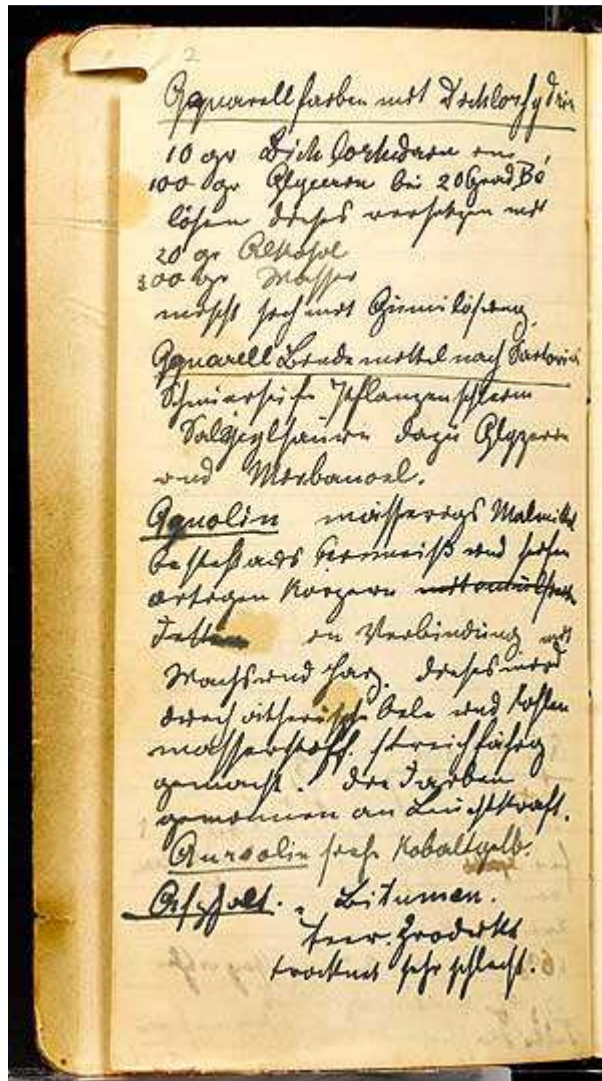 2
Aquarellfarben mit Dichlorhydrin
10 gr Dichlorhydrin in
100 gr Glycerin bei 20 Grad Bé
lösen dieses versetzen mit
20 gr Alkohol
300 gr Wasser
mischt sich mit Gumilösung.
Aquarell Bindemittel nach
Schmierseife Pflanzenschleim
Salizylsäure dazu Glyzerin
und Mirbanoel.
Aquolin wässeriges Malmittel
besteht aus Eiweiß und seifen
artigen Körpern
Fetten in Verbindung mit
Wachs und Harz. dieses wird
durch ätherische Oele und Kohlen
wasserstoff. streichfähig
gemacht. die Farben
gewinnen an Leuchtkraft.
Aureolin siehe Kobaltgelb.
Asphalt. Bitumen.
teer. Produkt
trocknet sehr schlecht.